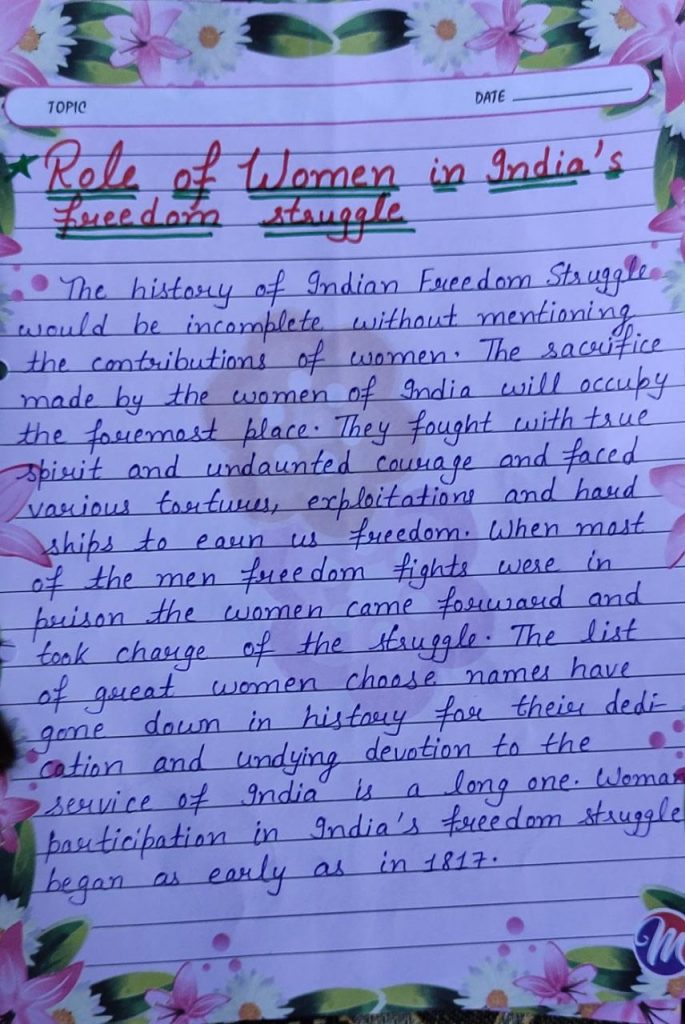 TOPIC
DATE
Role of Women in India's
freedom struggle
The history of Indian Freedom Struggle
would be incomplete without mentioning
the contributions of women. The sacrifice
made by the women of India will occupy
the foremost place. They fought with true
spirit and undaunted courage and faced
various tortures, exploitations and hard
ships to earn us freedom. When most
of the men freedom fights were in
prison the women came forward and
took charge of the struggle. The list
of great women choose names have
gone down in history for their dedi-
cation and undying devotion to the
service of India is a long one. Woman
participation in India's freedom struggle
began as early as in 1817.
M